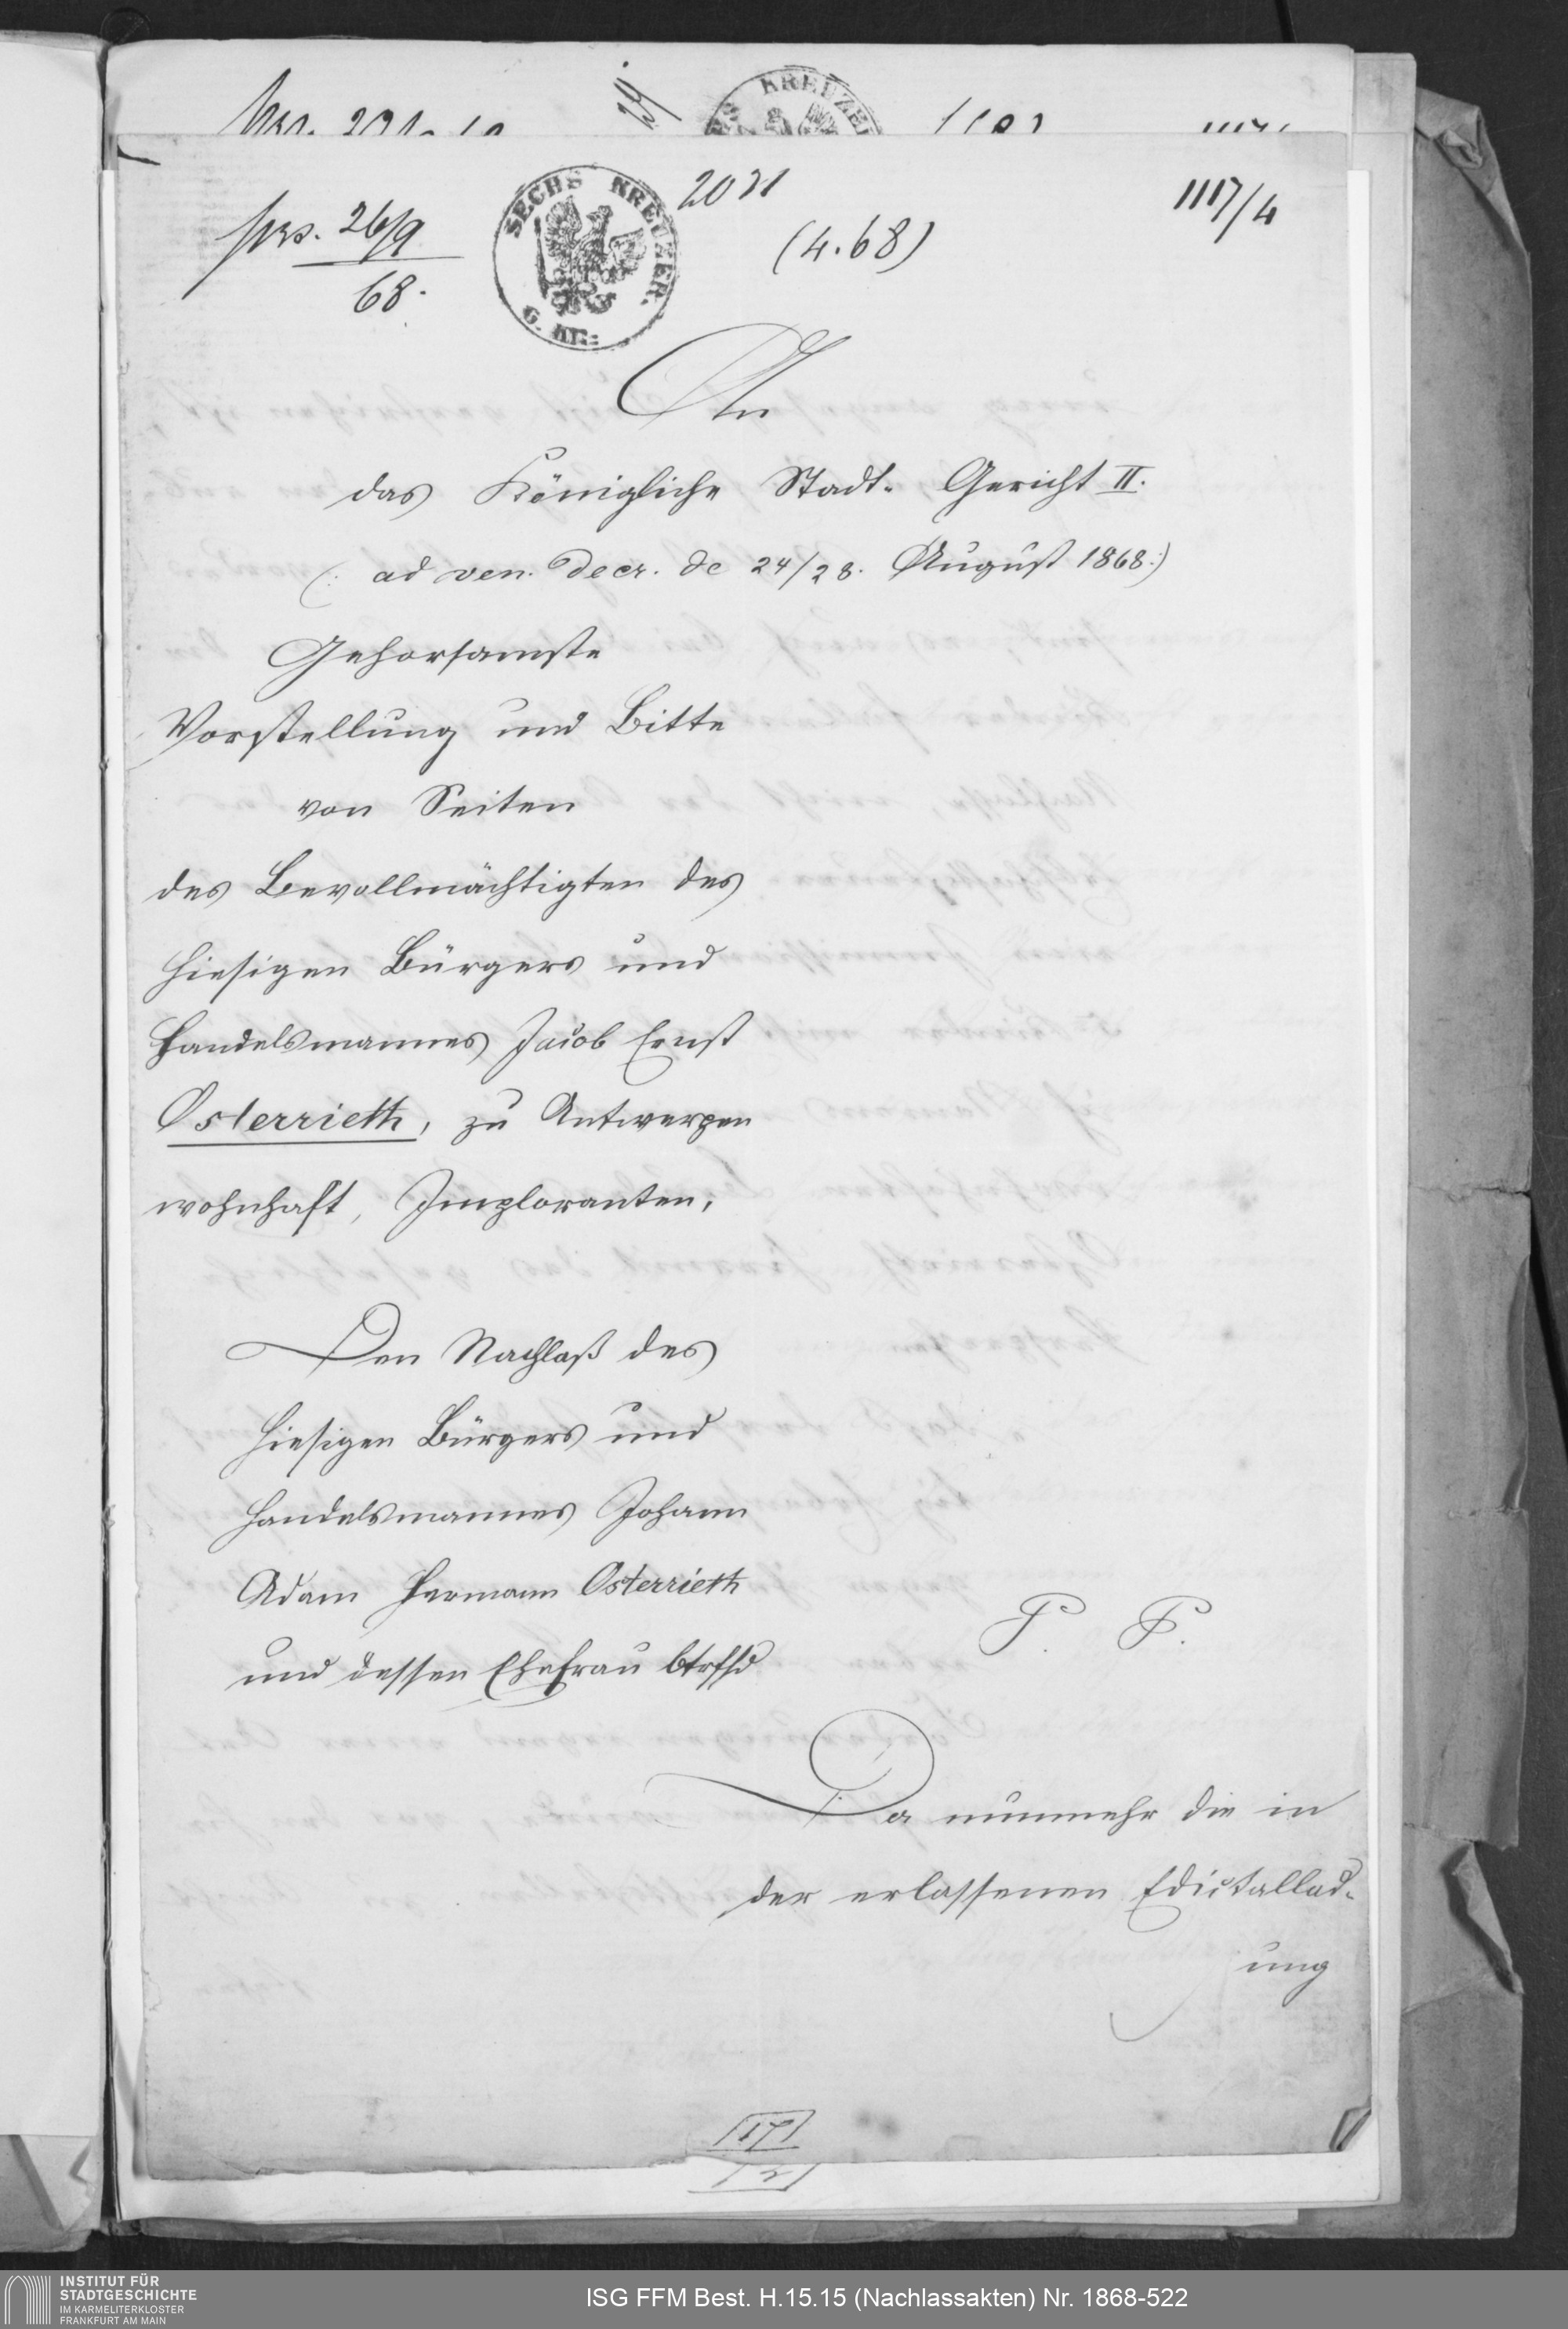 prs. 26/9
68.
SECHS KREUZER.
6. KR:
2021
(4.68)
1117/4
An
das Königliche Stadt- Gericht II.
(: ad ven. Decr. de 24/28. August 1868:)
Gehorsamste
Vorstellung und Bitte
von Seiten
des Bevollmächtigten des
hiesigen Bürgers und
Handelsmannes Jacob Ernst
Osterrieth, zu Antwerpen
wohnhaft, Imploranten,
Den Nachlaß des
hiesigen Bürgers und
Handelsmannes Johann
Adam Hermann Osterrieth
und dessen Ehefrau btrffd
P. P.
Da nunmehr die in
der erlassenen Edictallad-
ung
17
INSTITUT FÜR
STADTGESCHICHTE
IM KARMELITERKLOSTER
FRANKFURT AM MAIN
ISG FFM Best. H.15.15 (Nachlassakten) Nr. 1868-522